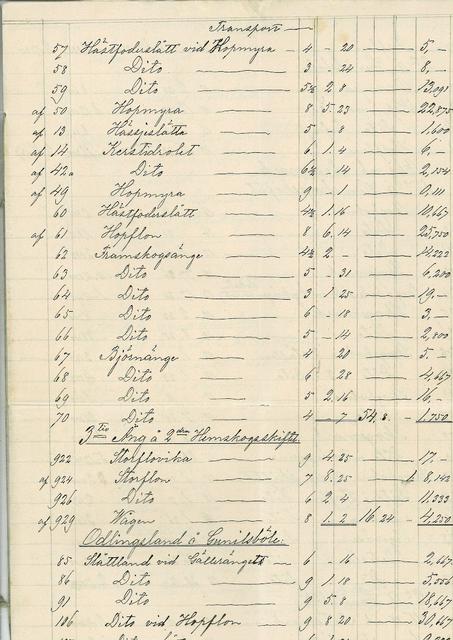 Transport
57 Hästfoderslätt vid Hopmyra 4 - 20 5,-
58 Dito 3 - 24 8,-
59 Dito 5½ 2 8 13,091
af 50 Hopmyra 8 5. 23 22,875
af 13 Hässjeslätte 5 - 8 1,600
af 14 Kerstidrolet 6 1. 4 6,-
af 42a Dito 6½ - 14 2,154
af 49 Hopmyra 9 - 1 0.111
60 Hästfoderslätt 4½ 1. 16 10,667
af 61 Hopflon 8 6. 14 25,750
62 Framskogsänge 4½ 2 - 14,222
63 Dito 5 - 31 6,200
64 Dito 3 1 25 19,-
65 Dito 6 - 18 3,-
66 Dito 5 - 14 2,800
67 Björnänge 4 20 5,-
68 Dito 6 28 4,667
69 Dito 5 2. 16 16,-
70 Dito 4 - 7 54, 8. - 1,750
3tio Äng å 2dra Hemskogsskifte
922 Storflovika 9 4. 25 17,-
af 924 Storflon 7 8. 25 8,143
926 Dito 6 2 4 11.333
af 929 Wågen 8 1. 2 16. 24 - 4,250
Odlingsland å Gunilsböle:
85 Slåttland vid 6 - 16 2,667
86 Dito 9 1. 18 5,556
91 Dito 9 5. 8 18,667
106 Dito vid Hopflon 9 8 20 30,667